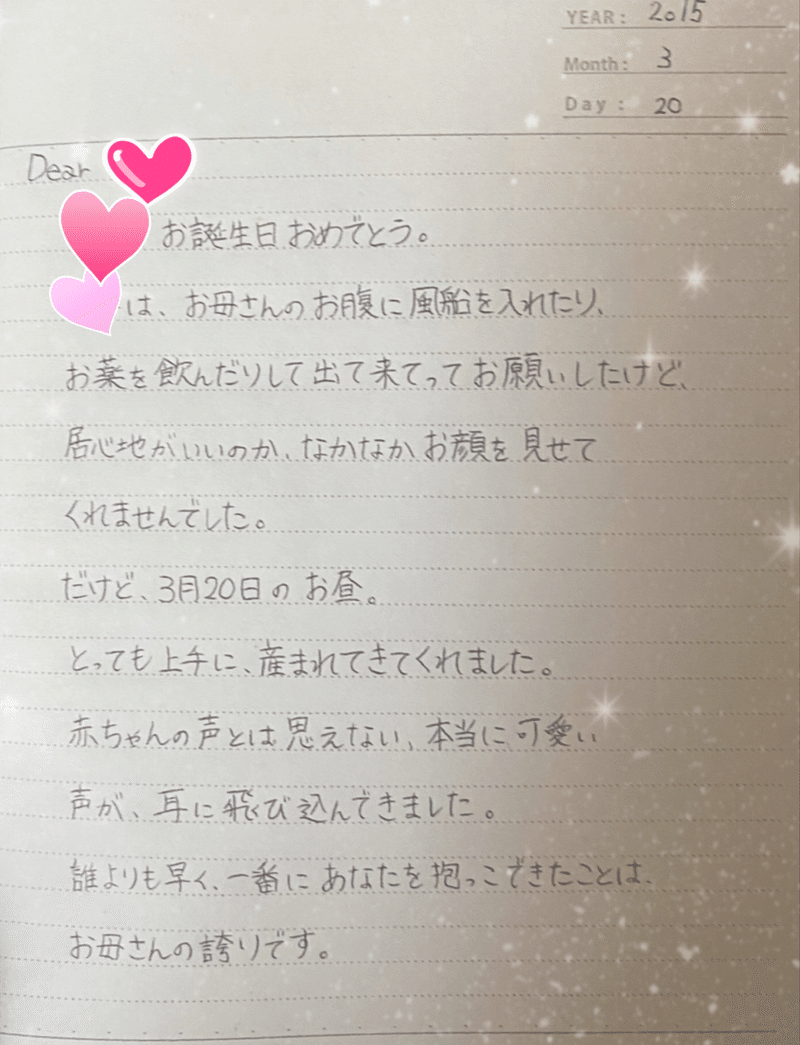 YEAR: 2015
Month: 3
Day: 20
Dear
お誕生日おめでとう。
は、お母さんのお腹に風船を入れたり、
お薬を飲んだりして出て来てってお願いしたけど、
居心地がいいのか、なかなかお顔を見せて
くれませんでした。
だけど、3月20日のお昼。
とっても上手に、産まれてきてくれました。
赤ちゃんの声とは思えない、本当に可愛い
声が、耳に飛び込んできました。
誰よりも早く、一番にあなたを抱っこできたことは、
お母さんの誇りです。